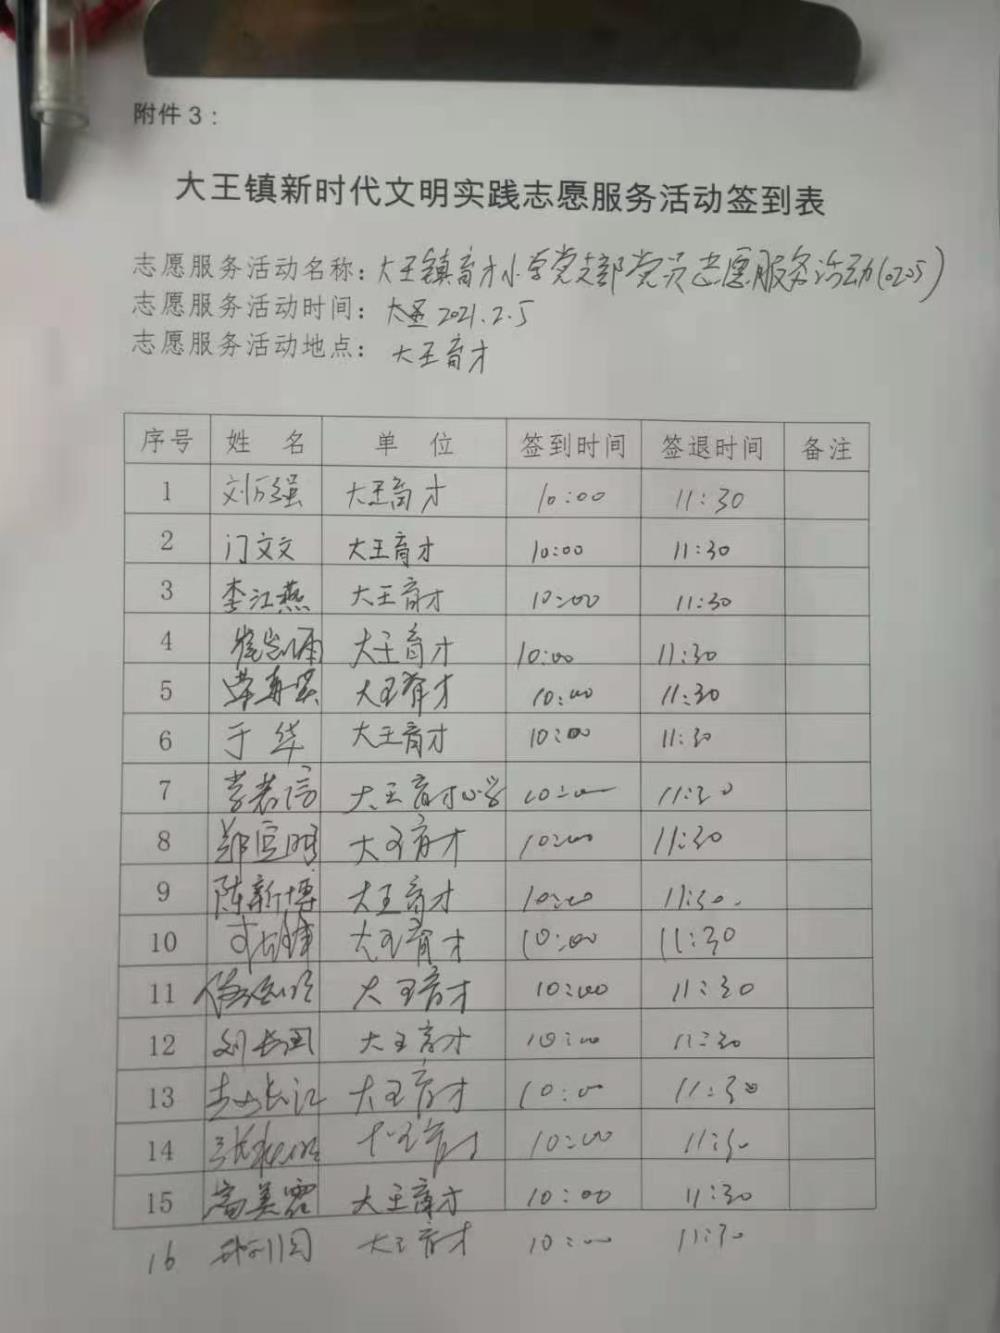 附件 3：
大王镇新时代文明实践志愿服务活动签到表
志愿服务活动名称：大王镇育才小学党支部党员志愿服务活动(0205)
志愿服务活动时间：2021.2.5
志愿服务活动地点：大王育才
序号 姓 名 单 位 签到时间 签退时间 备注
1 刘万强 大王育才 10:00 11:30
2 门文文 大王育才 10:00 11:30
3 李江燕 大王育才 10:00 11:30
4 大王育才 10:00 11:30
5 大王育才 10:00 11:30
6 于华 大王育才 10:00 11:30
7 大王育才小学 10:00 11:30
8 大王育才 10:00 11:30
9 陈新博 大王育才 10:00 11:30.
10 大王育才 10:00 11:30
11 大王育才 10:00 11:30
12 大王育才 10:00 11:30
13 大王育才 10:00 11:30
14 10:00 11:30
15 高美霞 大王育才 10:00 11:30
16 大王育才 10:00 11:30